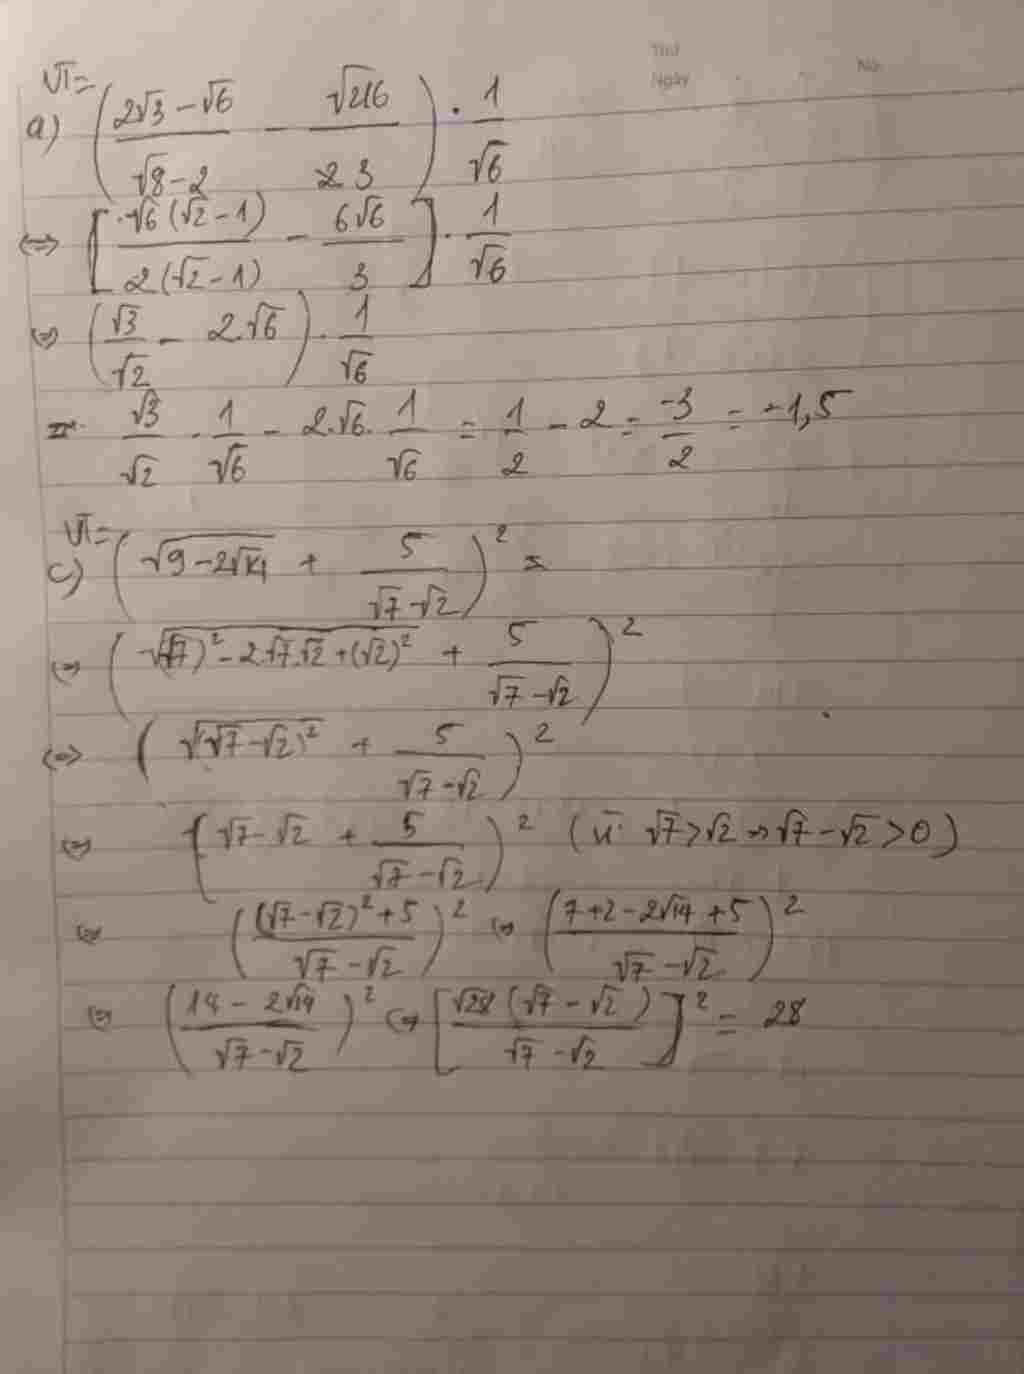 Thứ
Ngày
No.
VT=
a) (2√3 - √6 / √8 - 2 - √216 / 3) . 1/√6
⇔ [√6(√2 - 1) / 2(√2 - 1) - 6√6 / 3] . 1/√6
⇔ (√3/√2 - 2.√6) . 1/√6
√3/√2 . 1/√6 - 2.√6 . 1/√6 = 1/2 - 2 = -3/2 = -1,5
VT=
c) (√(9 - 2√14) + 5 / √7 - √2)² =
⇔ (√((√7)² - 2.√7.√2 + (√2)²) + 5 / √7 - √2)²
⇔ (√((√7 - √2)²) + 5 / √7 - √2)²
⇔ (√7 - √2 + 5 / √7 - √2)² (vì √7 > √2 ⇒ √7 - √2 > 0)
⇔ ((√7 - √2)² + 5 / √7 - √2)² ⇔ (7 + 2 - 2√14 + 5 / √7 - √2)²
⇔ (14 - 2√14 / √7 - √2)² ⇔ [√28 (√7 - √2) / √7 - √2]² = 28